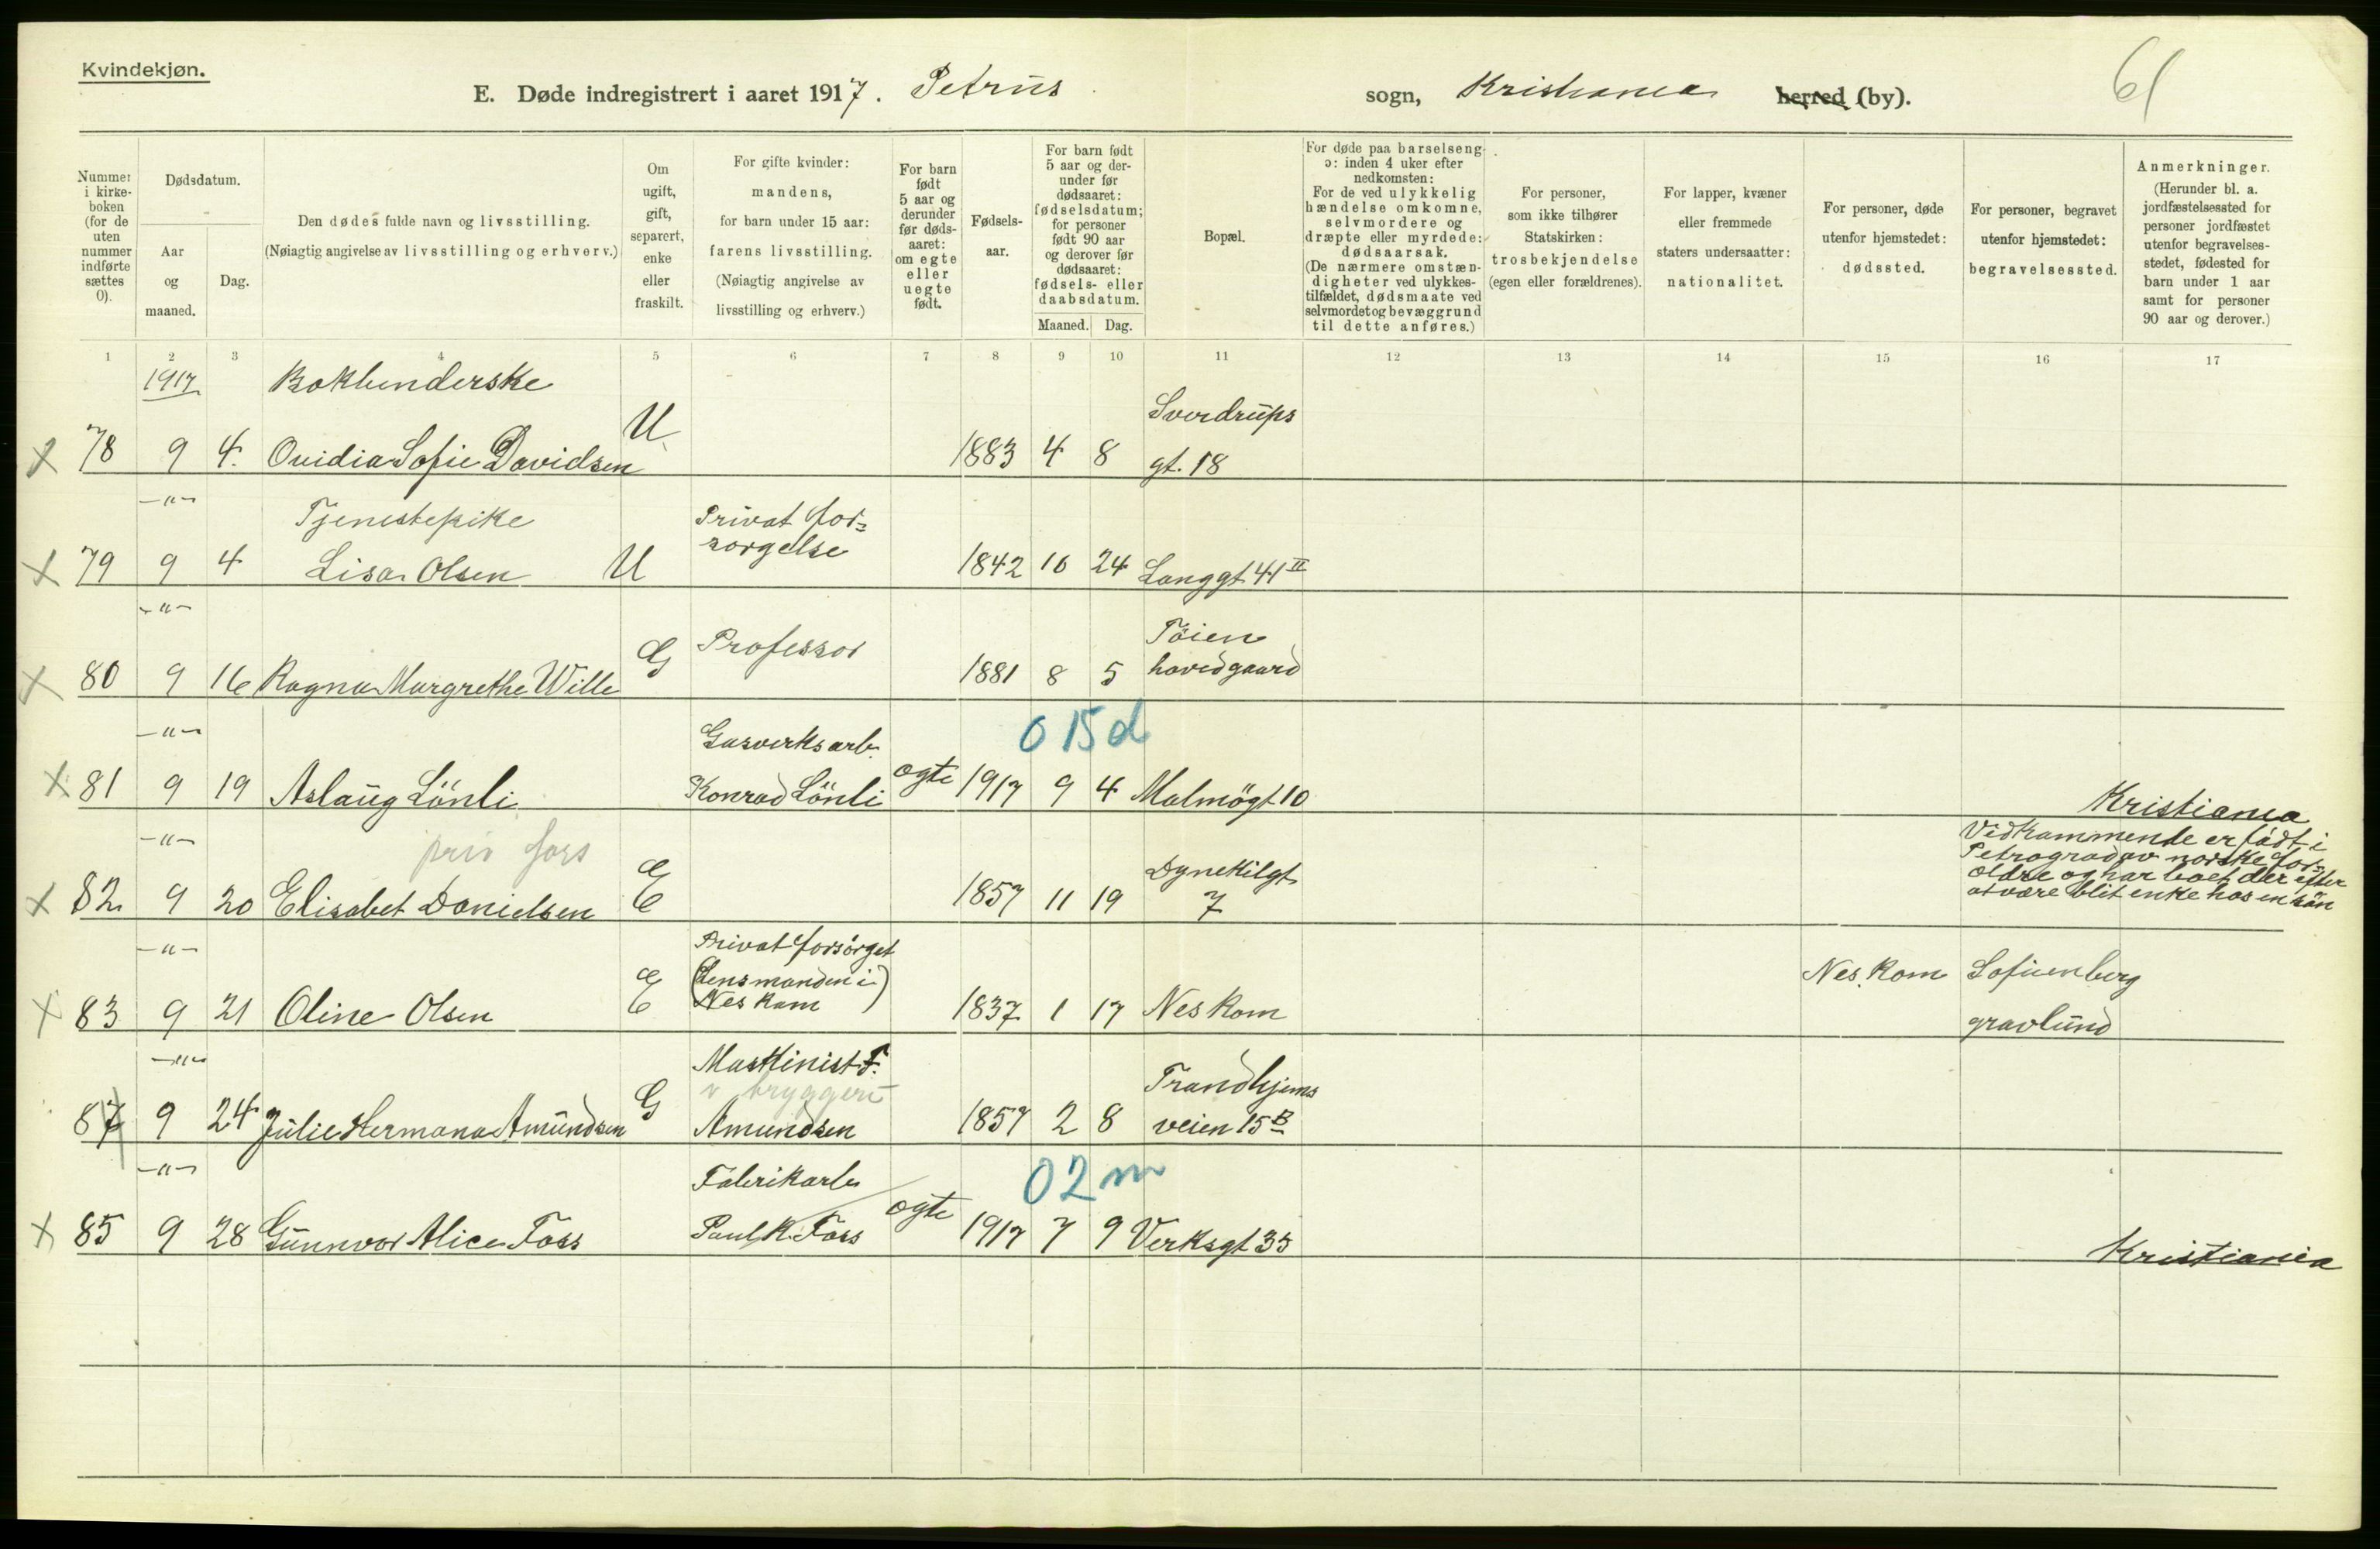 Kvindekjøn.
E. Døde indregistrert i aaret 1917. Petrus sogn, Kristiania herred (by).
61
Nummer i kirkeboken (for de uten nummer indførte sættes 0).
Dødsdatum.
Aar og maaned.
Dag.
Den dødes fulde navn og livsstilling.
(Nøiagtig angivelse av livsstilling og erhverv.)
Om ugift, gift, separert, enke eller fraskilt.
For gifte kvinder: mandens, for barn under 15 aar: farens livsstilling. (Nøiagtig angivelse av livsstilling og erhverv.)
For barn født 5 aar og derunder før dødsaaret: om egte eller uegte født.
Fødselsaar.
For barn født 5 aar og derunder før dødsaaret: fødselsdatum; for personer født 90 aar og derover før dødsaaret: fødsels- eller daabsdatum.
Maaned. Dag.
Bopæl.
For døde paa barselseng ɔ: inden 4 uker efter nedkomsten: For de ved ulykkelig hændelse omkomne, selvmordere og dræpte eller myrdede: dødsaarsak. (De nærmere omstændigheter ved ulykkestilfældet, dødsmaate ved selvmordet og bevæggrund til dette anføres.)
For personer, som ikke tilhører Statskirken: trosbekjendelse (egen eller forældrenes).
For lapper, kvæner eller fremmede staters undersaatter: nationalitet.
For personer, døde utenfor hjemstedet: dødssted.
For personer, begravet utenfor hjemstedet: begravelsessted.
Anmerkninger. (Herunder bl. a. jordfæstelsessted for personer jordfæstet utenfor begravelsesstedet, fødested for barn under 1 aar samt for personer 90 aar og derover.)
1 2 3 4 5 6 7 8 9 10 11 12 13 14 15 16 17
1917 Bokbinderske Sverdrups
x 78 9 4. Ovidia Sofie Davidsen U 1883 4 8 gt. 18
-"- Tjenestepike Privat for=
sorgelse
x 79 9 4 Lisa Olsen U 1842 10 24 Langgt 41 II
-"- Professor Töien
x 80 9 16 Ragna Margrethe Wille G 1881 8 5 hovedgaard
-"- Gasverksarb. 0 15 d
x 81 9 19 Aslaug Lönli Konrad Lönli egte 1917 9 4 Malmögt 10 Kristiania
-"- priv fors Dynekilgt
x 82 9 20 Elisabet Danielsen E 1857 11 19 7
Vedkommende er födt i
Petrograd av norske for=
ældre og har boet der efter
at være blit enke hos en sön
-"- Privat forsörget
(Lensmanden i
Nes kom)
x 83 9 21 Oline Olsen E 1837 1 17 Nes kom Nes. kom Sofienberg
gravlund
-"- Maskinist F.
v bryggeri Trondhjems
87 9 24 Julie Hermana Amundsen G Amundsen 1857 2 8 veien 15 B
-"- Fabrikarb 0 2 m
x 85 9 28 Gunnvor Alice Foss Paul K. Foss egte 1917 7 9 Verksgt 33 Kristiania